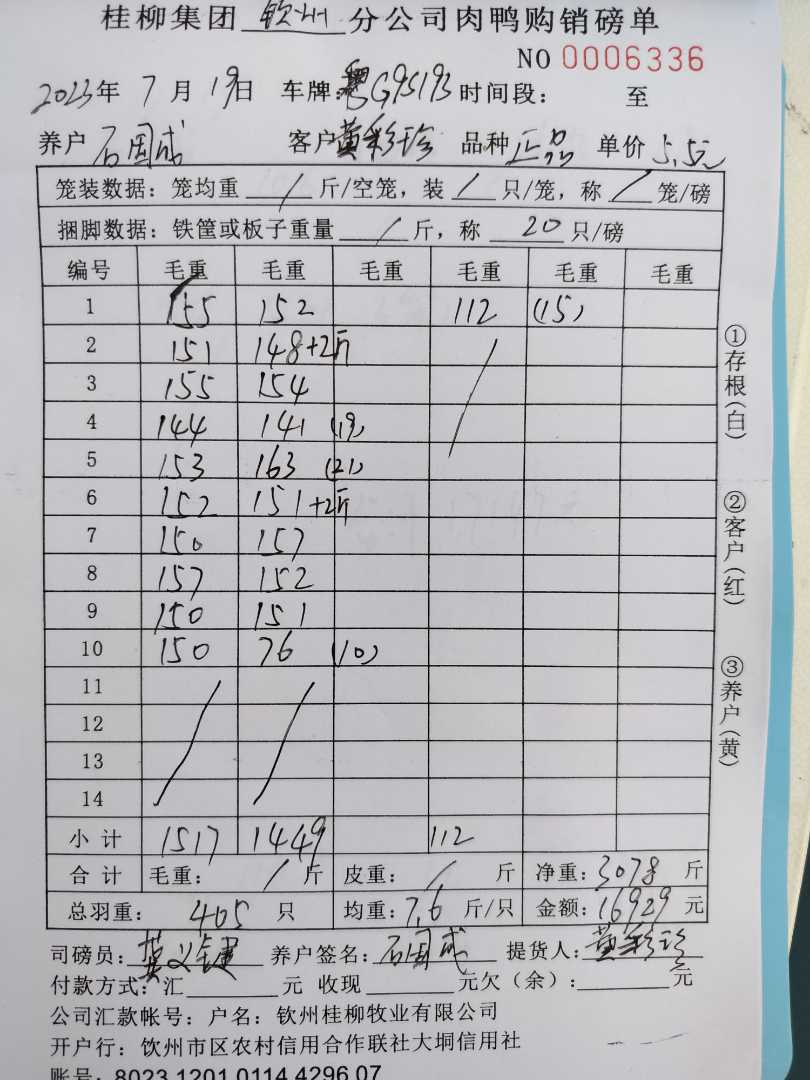 桂柳集团 钦州 分公司肉鸭购销磅单
NO 0006336
2023年 7 月 19日 车牌:粤G95193 时间段: 至
养户 石国成 客户 黄彩珍 品种 正品 单价 5.5元
笼装数据: 笼均重 / 斤/空笼, 装 / 只/笼, 称 / 笼/磅
捆脚数据: 铁筐或板子重量 / 斤, 称 20 只/磅
编号 毛重 毛重 毛重 毛重 毛重 毛重
1 155 152 112 (15)
2 151 148+2斤
3 155 154
4 144 141 (19)
5 153 163 (21)
6 152 151+2斤
7 150 157
8 157 152
9 150 151
10 150 76 (10)
11
12
13
14
小计 1517 1449 112
合计 毛重: / 斤 皮重: / 斤 净重: 3078 斤
总羽重: 405 只 均重: 7.6 斤/只 金额: 16929 元
司磅员: 养户签名: 石国成 提货人: 黄彩珍
付款方式: 汇 元 收现 元欠(余): 元
公司汇款帐号: 户名: 钦州桂柳牧业有限公司
开户行: 钦州市区农村信用合作联社大垌信用社
账号: 8023 1201 0114 4296 07
①存根(白)
②客户(红)
③养户(黄)